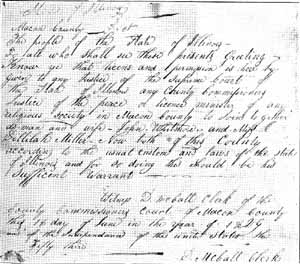 State of Illinois
Macon County Sct
The people of the State of Illinois
To all who Shall see these presents Greeting
Know that licens and permission is here by
given to any Justice of the Supreme Court of
the State of Illinois any County Commissioning
Justice of the peace or licenced minister of any
religious Society in Macon County to Join to gether
as man and wife John and Miss
Miller Now both of this County
according to the usual custom and laws of the state
of Illinois and for so doing this Should be his
Sufficient Warrant
Witness D. McCall Clerk of the
County Commissioners Court of Macon County
this day of June in the year of 1829
and of the Independance of this united States the
Fifty third
D. McCall Clerk